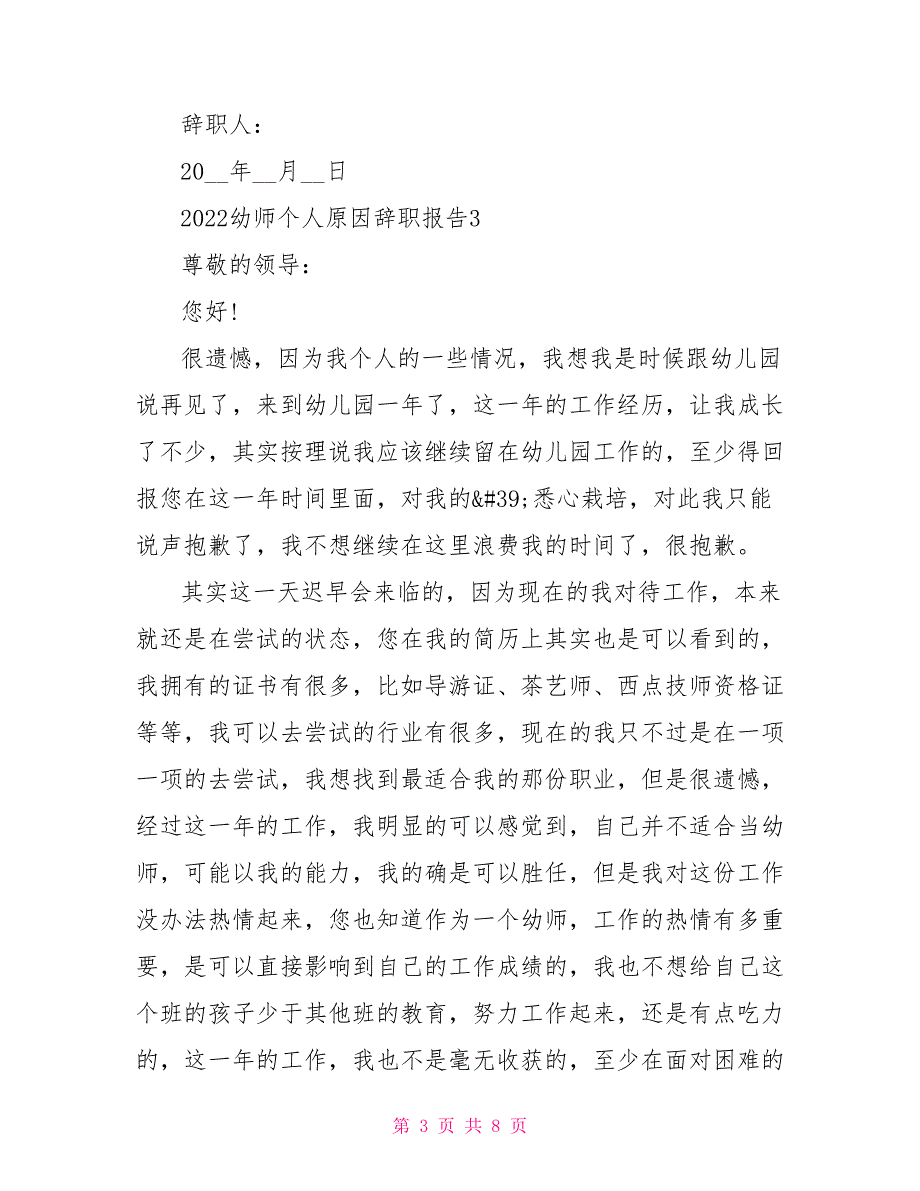 辞职人：
20__年__月__日
2022幼师个人原因辞职报告3
尊敬的领导：
您好！
很遗憾，因为我个人的一些情况，我想我是时候跟幼儿园
说再见了，来到幼儿园一年了，这一年的工作经历，让我成长
了不少，其实按理说我应该继续留在幼儿园工作的，至少得回
报您在这一年时间里面，对我的&#39;悉心栽培，对此我只能
说声抱歉了，我不想继续在这里浪费我的时间了，很抱歉。
其实这一天迟早会来临的，因为现在的我对待工作，本来
就还是在尝试的状态，您在我的简历上其实也是可以看到的，
我拥有的证书有很多，比如导游证、茶艺师、西点技师资格证
等等，我可以去尝试的行业有很多，现在的我只不过是在一项
一项的去尝试，我想找到最适合我的那份职业，但是很遗憾，
经过这一年的工作，我明显的可以感觉到，自己并不适合当幼
师，可能以我的能力，我的确是可以胜任，但是我对这份工作
没办法热情起来，您也知道作为一个幼师，工作的热情有多重
要，是可以直接影响到自己的工作成绩的，我也不想给自己这
个班的孩子少于其他班的教育，努力工作起来，还是有点吃力
的，这一年的工作，我也不是毫无收获的，至少在面对困难的
第 3 页 共 8 页